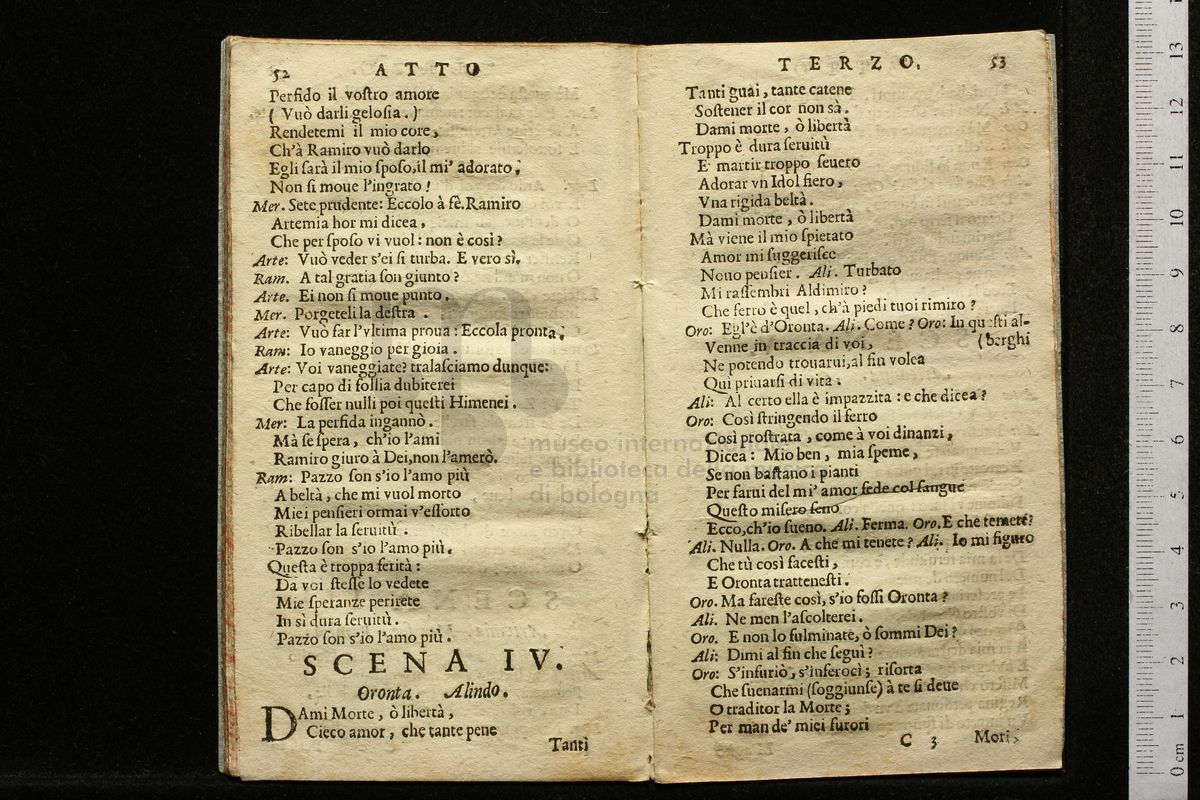 52 ATTO
Perfido il voſtro amore
( Vuò darli geloſia. )
Rendetemi il mio core,
Ch'à Ramiro vuò darlo
Egli ſarà il mio ſpoſo,il mi' adorato,
Non ſi moue l'ingrato!
Mer. Sete prudente: Eccolo à fè.Ramiro
Artemia hor mi dicea,
Che per ſpoſo vi vuol: non è così?
Arte: Vuò veder s'ei ſi turba. E vero sì,
Ram. A tal gratia ſon giunto?
Arte. Ei non ſi moue punto.
Mer. Porgeteli la deſtra.
Arte: Vuò far l'vltima proua: Eccola pronta,
Ram: Io vaneggio per gioia.
Arte: Voi vaneggiate? tralaſciamo dunque:
Per capo di follia dubiterei
Che foſſer nulli poi queſti Himenei.
Mer: La perfida ingannò.
Mà ſe ſpera, ch'io l'ami
Ramiro giuro à Dei,non l'amerò.
Ram: Pazzo ſon s'io l'amo più
A beltà, che mi vuol morto
Miei penſieri ormai v'eſſorto
Ribellar la ſeruitù.
Pazzo ſon s'io l'amo più.
Queſta è troppa ferità:
Da voi ſteſſe lo vedete
Mie ſperanze perirete
In sì dura ſeruitù.
Pazzo ſon s'io l'amo più.
SCENA IV.
Oronta. Alindo.
DAmi Morte, ò libertà,
Cieco amor, che tante pene
Tanti
TERZO. 53
Tanti guai, tante catene
Soſtener il cor non sà.
Dami morte, ò libertà
Troppo è dura ſeruitù
E' martir troppo ſeuero
Adorar vn Idol fiero,
Vna rigida beltà.
Dami morte, ò libertà
Mà viene il mio ſpietato
Amor mi ſuggeriſce
Nouo penſier. Ali. Turbato
Mi raſſembri Aldimiro?
Che ferro è quel, ch'à piedi tuoi rimiro?
Oro: Egl'è d'Oronta. Ali. Come? Oro: In queſti al-
Venne in traccia di voi, (berghi
Ne potendo trouarui,al fin volea
Qui priuarſi di vita.
Ali: Al certo ella è impazzita: e che dicea?
Oro: Così ſtringendo il ferro
Così proſtrata, come à voi dinanzi,
Dicea: Mio ben, mia ſpeme,
Se non baſtano i pianti
Per farui del mi' amor fede col ſangue
Queſto miſero ſeno
Ecco,ch'io ſueno. Ali. Ferma. Oro.E che temete?
Ali. Nulla. Oro. A che mi tenete? Ali. Io mi figuro
Che tù così faceſti,
E Oronta tratteneſti.
Oro. Ma fareſte così, s'io foſſi Oronta?
Ali. Ne men l'aſcolterei.
Oro. E non lo fulminate, ò ſommi Dei?
Ali: Dimi al fin che ſeguì?
Oro: S'infuriò, s'inferocì; riſorta
Che ſuenarmi (ſoggiunſe) à te ſi deue
O traditor la Morte;
Per man de' miei furori
C 3 Mori,
museo internazionale
e biblioteca della musica
di bologna
0 cm 1 2 3 4 5 6 7 8 9 10 11 12 13